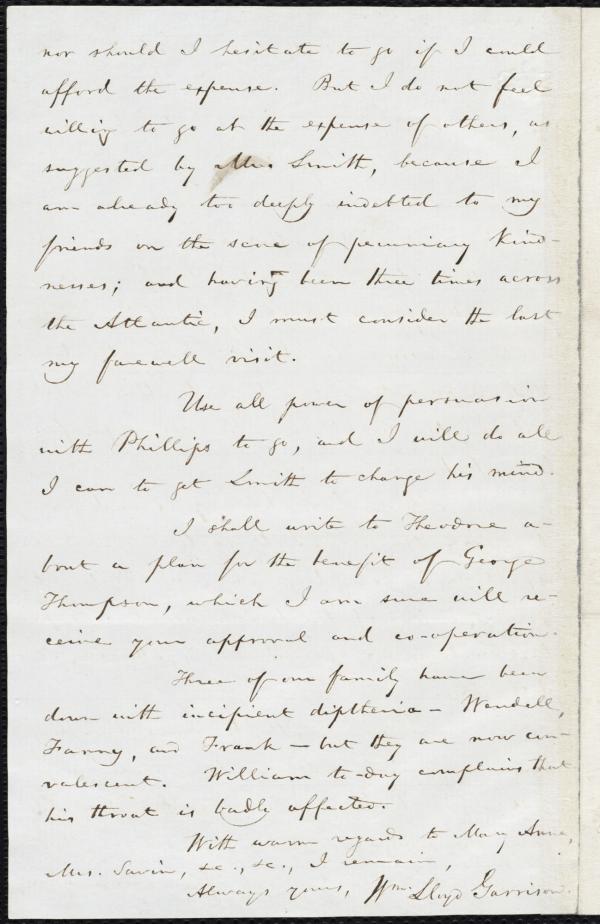 nor should I hesitate to go if I could
afford the expense. But I do not feel
willing to go at the expense of others, as
suggested by Mr. Smith, because I
am already too deeply indebted to my
friends on the score of pecuniary kind-
nesses; and having been three times across
the Atlantic, I must consider the last
my farewell visit.
Use all power of persuasion
with Phillips to go, and I will do all
I can to get Smith to change his mind.
I shall write to Theodore a-
bout a plan for the benefit of George
Thompson, which I am sure will re-
ceive your approval and co-operation.
Three of our family have been
down with incipient diptheria — Wendell,
Fanny, and Frank — but they are now con-
valescent. William to-day complains that
his throat is badly affected.
With warm regards to Mary Anne,
Mrs. Savin, &c., &c., I remain,
Always yours, Wm. Lloyd Garrison.